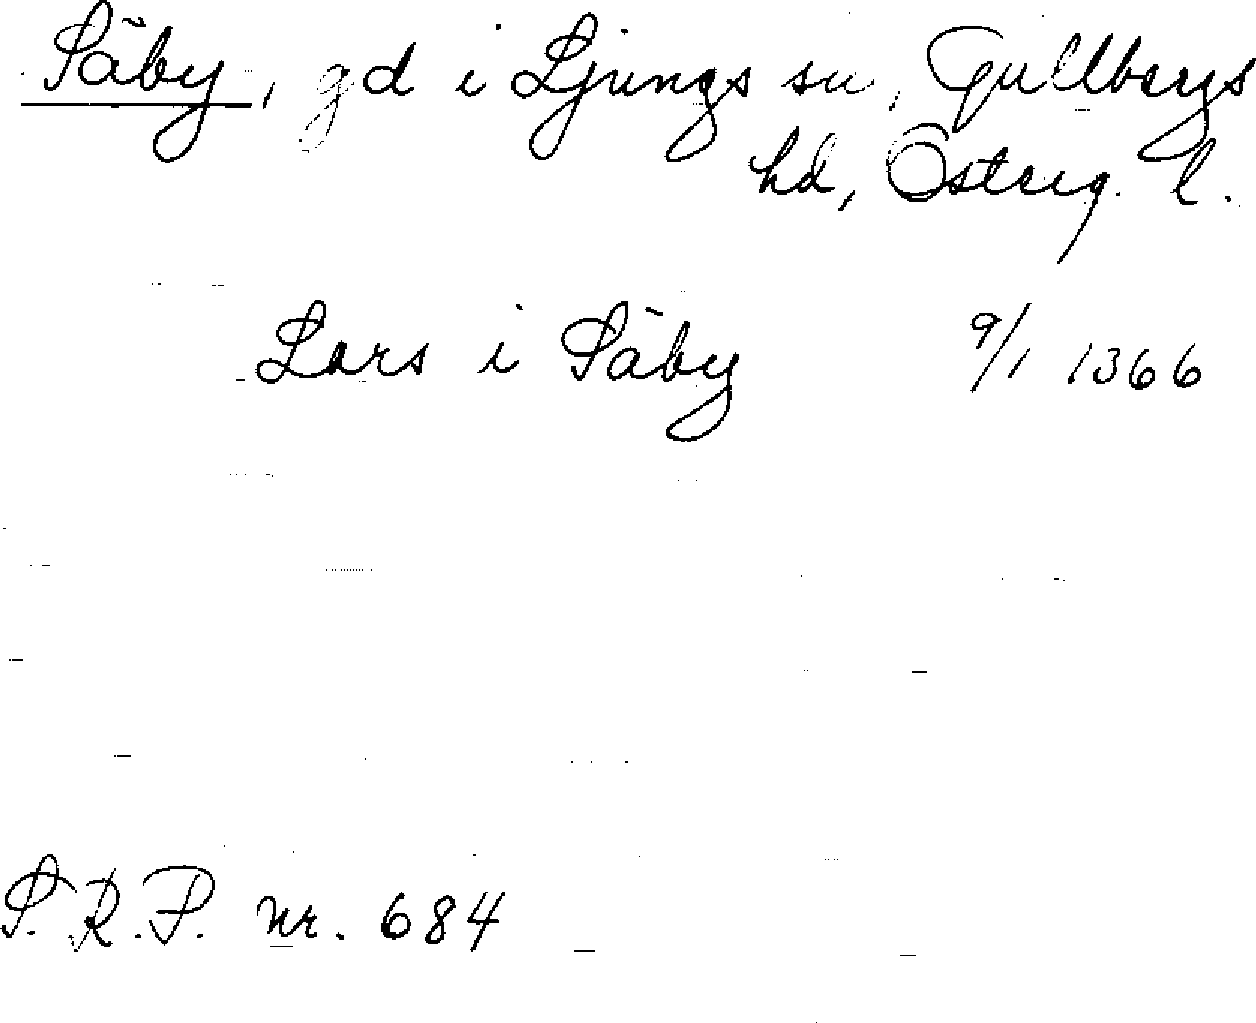 Säby, gd i Ljungs sn, Gullbergs
hd, Österg. l.
Lars i Säby 9/1 1366
S.R.P. nr. 684